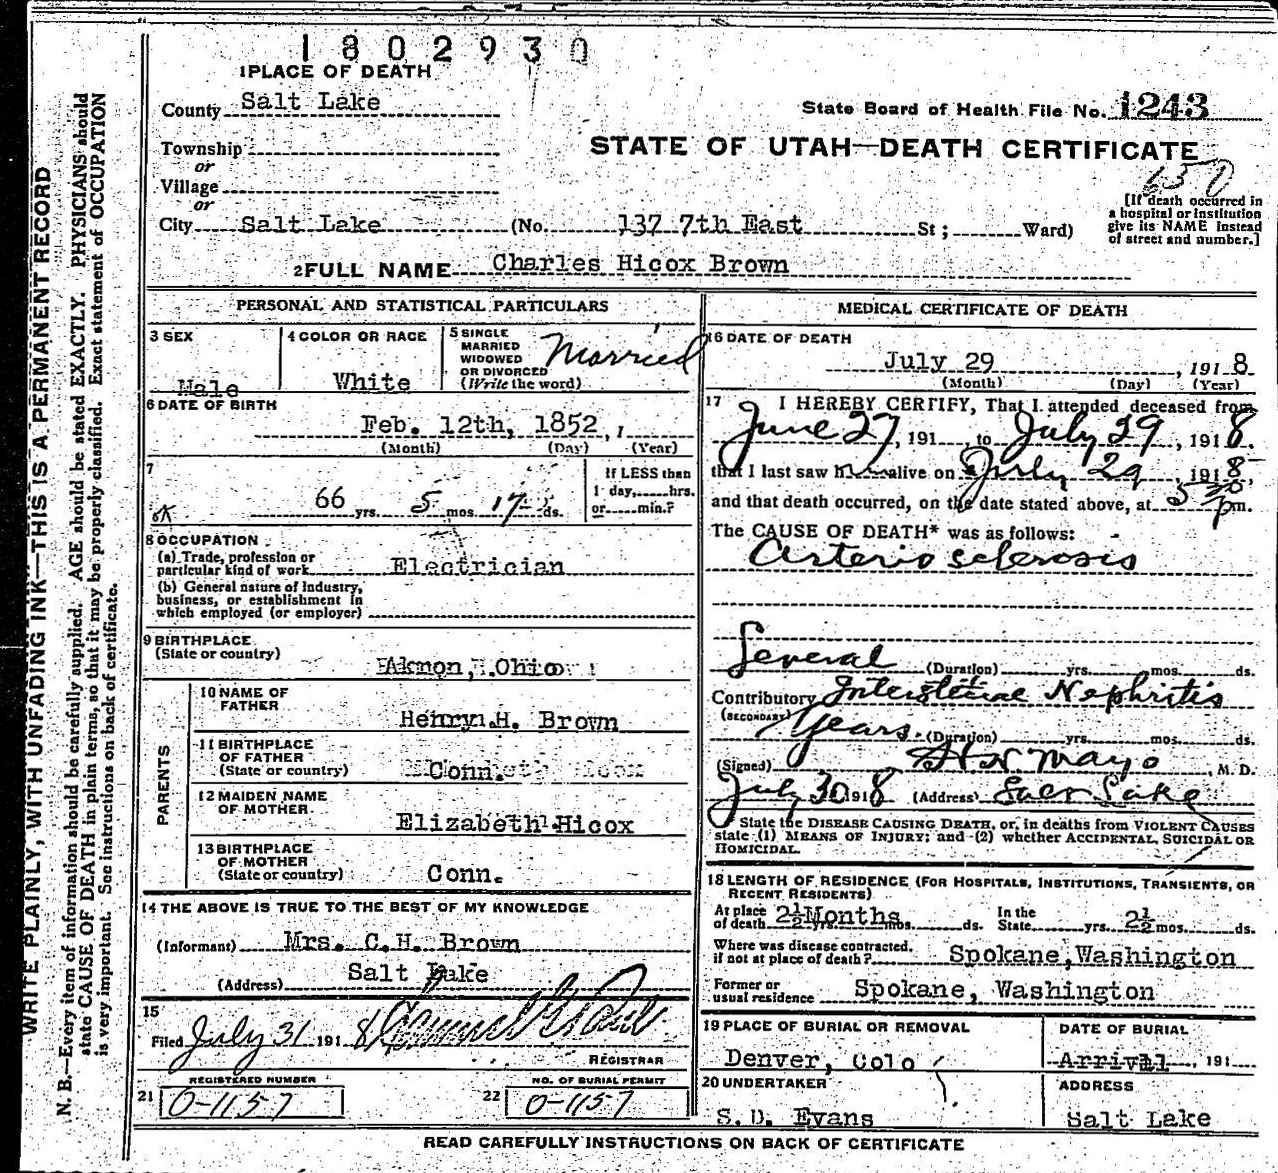 1802930
1 PLACE OF DEATH
County Salt Lake
State Board of Health File No. 1243
Township
or
Village
or
STATE OF UTAH—DEATH CERTIFICATE
650
City Salt Lake (No. 137 7th East St; Ward)
[If death occurred in
a hospital or institution
give its NAME instead
of street and number.]
2 FULL NAME Charles Hicox Brown
PERSONAL AND STATISTICAL PARTICULARS
3 SEX
Male
4 COLOR OR RACE
White
5 SINGLE
MARRIED
WIDOWED
OR DIVORCED
(Write the word)
Married
6 DATE OF BIRTH
Feb. 12th, 1852
(Month) (Day) (Year)
7
66 yrs. 5 mos. 17 ds.
If LESS than
1 day,......hrs.
or......min.?
8 OCCUPATION
(a) Trade, profession or
particular kind of work Electrician
(b) General nature of industry,
business, or establishment in
which employed (or employer)
9 BIRTHPLACE
(State or country)
Akron, Ohio
PARENTS
10 NAME OF
FATHER
Henry H. Brown
11 BIRTHPLACE
OF FATHER
(State or country)
Conn.
12 MAIDEN NAME
OF MOTHER
Elizabeth Hicox
13 BIRTHPLACE
OF MOTHER
(State or country)
Conn.
14 THE ABOVE IS TRUE TO THE BEST OF MY KNOWLEDGE
(Informant) Mrs. C.H. Brown
(Address) Salt Lake
15
Filed July 31 1918
REGISTRAR
REGISTERED NUMBER
21 0-1157
NO. OF BURIAL PERMIT
22 0-1157
MEDICAL CERTIFICATE OF DEATH
16 DATE OF DEATH
July 29, 1918
(Month) (Day) (Year)
17 I HEREBY CERTIFY, That I attended deceased from
June 27, 191 , to July 29, 1918.
that I last saw h alive on July 29, 1918,
and that death occurred, on the date stated above, at 5 30 pm.
The CAUSE OF DEATH* was as follows:
Arterio sclerosis
Several (Duration) yrs. mos. ds.
Contributory Interstitial Nephritis
(SECONDARY)
Years. (Duration) yrs. mos. ds.
(Signed) H N Mayo, M. D.
July 30 1918 (Address) Salt Lake
State the DISEASE CAUSING DEATH, or, in deaths from VIOLENT CAUSES
state (1) MEANS OF INJURY; and (2) whether ACCIDENTAL, SUICIDAL OR
HOMICIDAL.
18 LENGTH OF RESIDENCE (FOR HOSPITALS, INSTITUTIONS, TRANSIENTS, OR
RECENT RESIDENTS)
At place
of death 2½ yrs. Months mos. ds.
In the
State yrs. 2½ mos. ds.
Where was disease contracted.
if not at place of death? Spokane, Washington
Former or
usual residence Spokane, Washington
19 PLACE OF BURIAL OR REMOVAL
Denver, Colo
DATE OF BURIAL
Arrival, 191
20 UNDERTAKER
S. D. Evans
ADDRESS
Salt Lake
READ CAREFULLY INSTRUCTIONS ON BACK OF CERTIFICATE
WRITE PLAINLY, WITH UNFADING INK—THIS IS A PERMANENT RECORD
N. B.—Every item of information should be carefully supplied. AGE should be stated EXACTLY. PHYSICIANS should
state CAUSE OF DEATH in plain terms, so that it may be properly classified. Exact statement of OCCUPATION
is very important. See instructions on back of certificate.